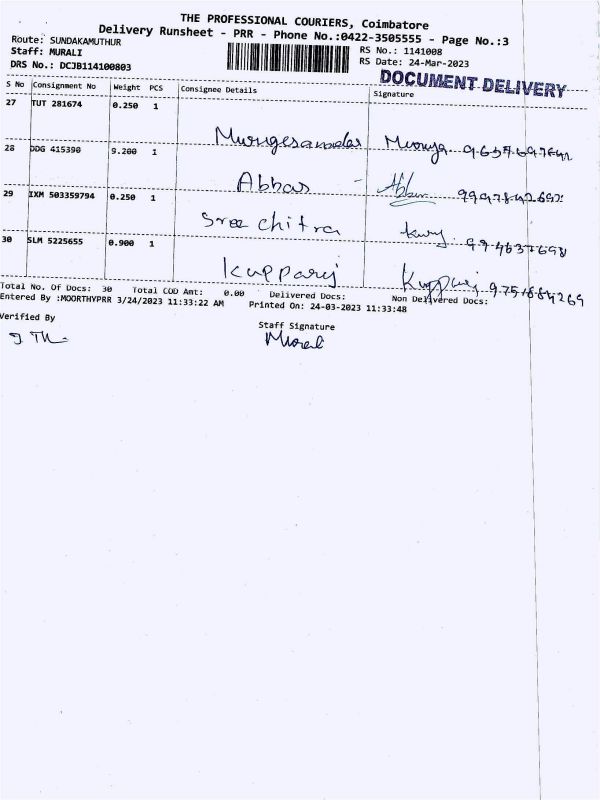 THE PROFESSIONAL COURIERS, Coimbatore
Delivery Runsheet - PRR - Phone No.:0422-3505555 - Page No.:3
Route: SUNDAKAMUTHUR
Staff: MURALI
DRS No.: DCJB114100803
RS No.: 1141008
RS Date: 24-Mar-2023
DOCUMENT DELIVERY
S No Consignment No Weight PCS Consignee Details Signature
27 TUT 281674 0.250 1
28 DDG 415390 9.200 1
Abbas
29 IXM 503359794 0.250 1
Sree chitra
30 SLM 5225655 0.900 1
Kupparj
Total No. Of Docs: 30 Total COD Amt: 0.00 Delivered Docs: Non Delivered Docs:
Entered By :MOORTHYPRR 3/24/2023 11:33:22 AM Printed On: 24-03-2023 11:33:48
Verified By
Staff Signature
Murali